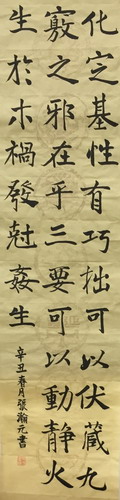 化定基性有巧拙可以伏藏九
竅之邪在乎三要可以動靜火
生於木禍發尅姦生
辛丑春月張瀚元書